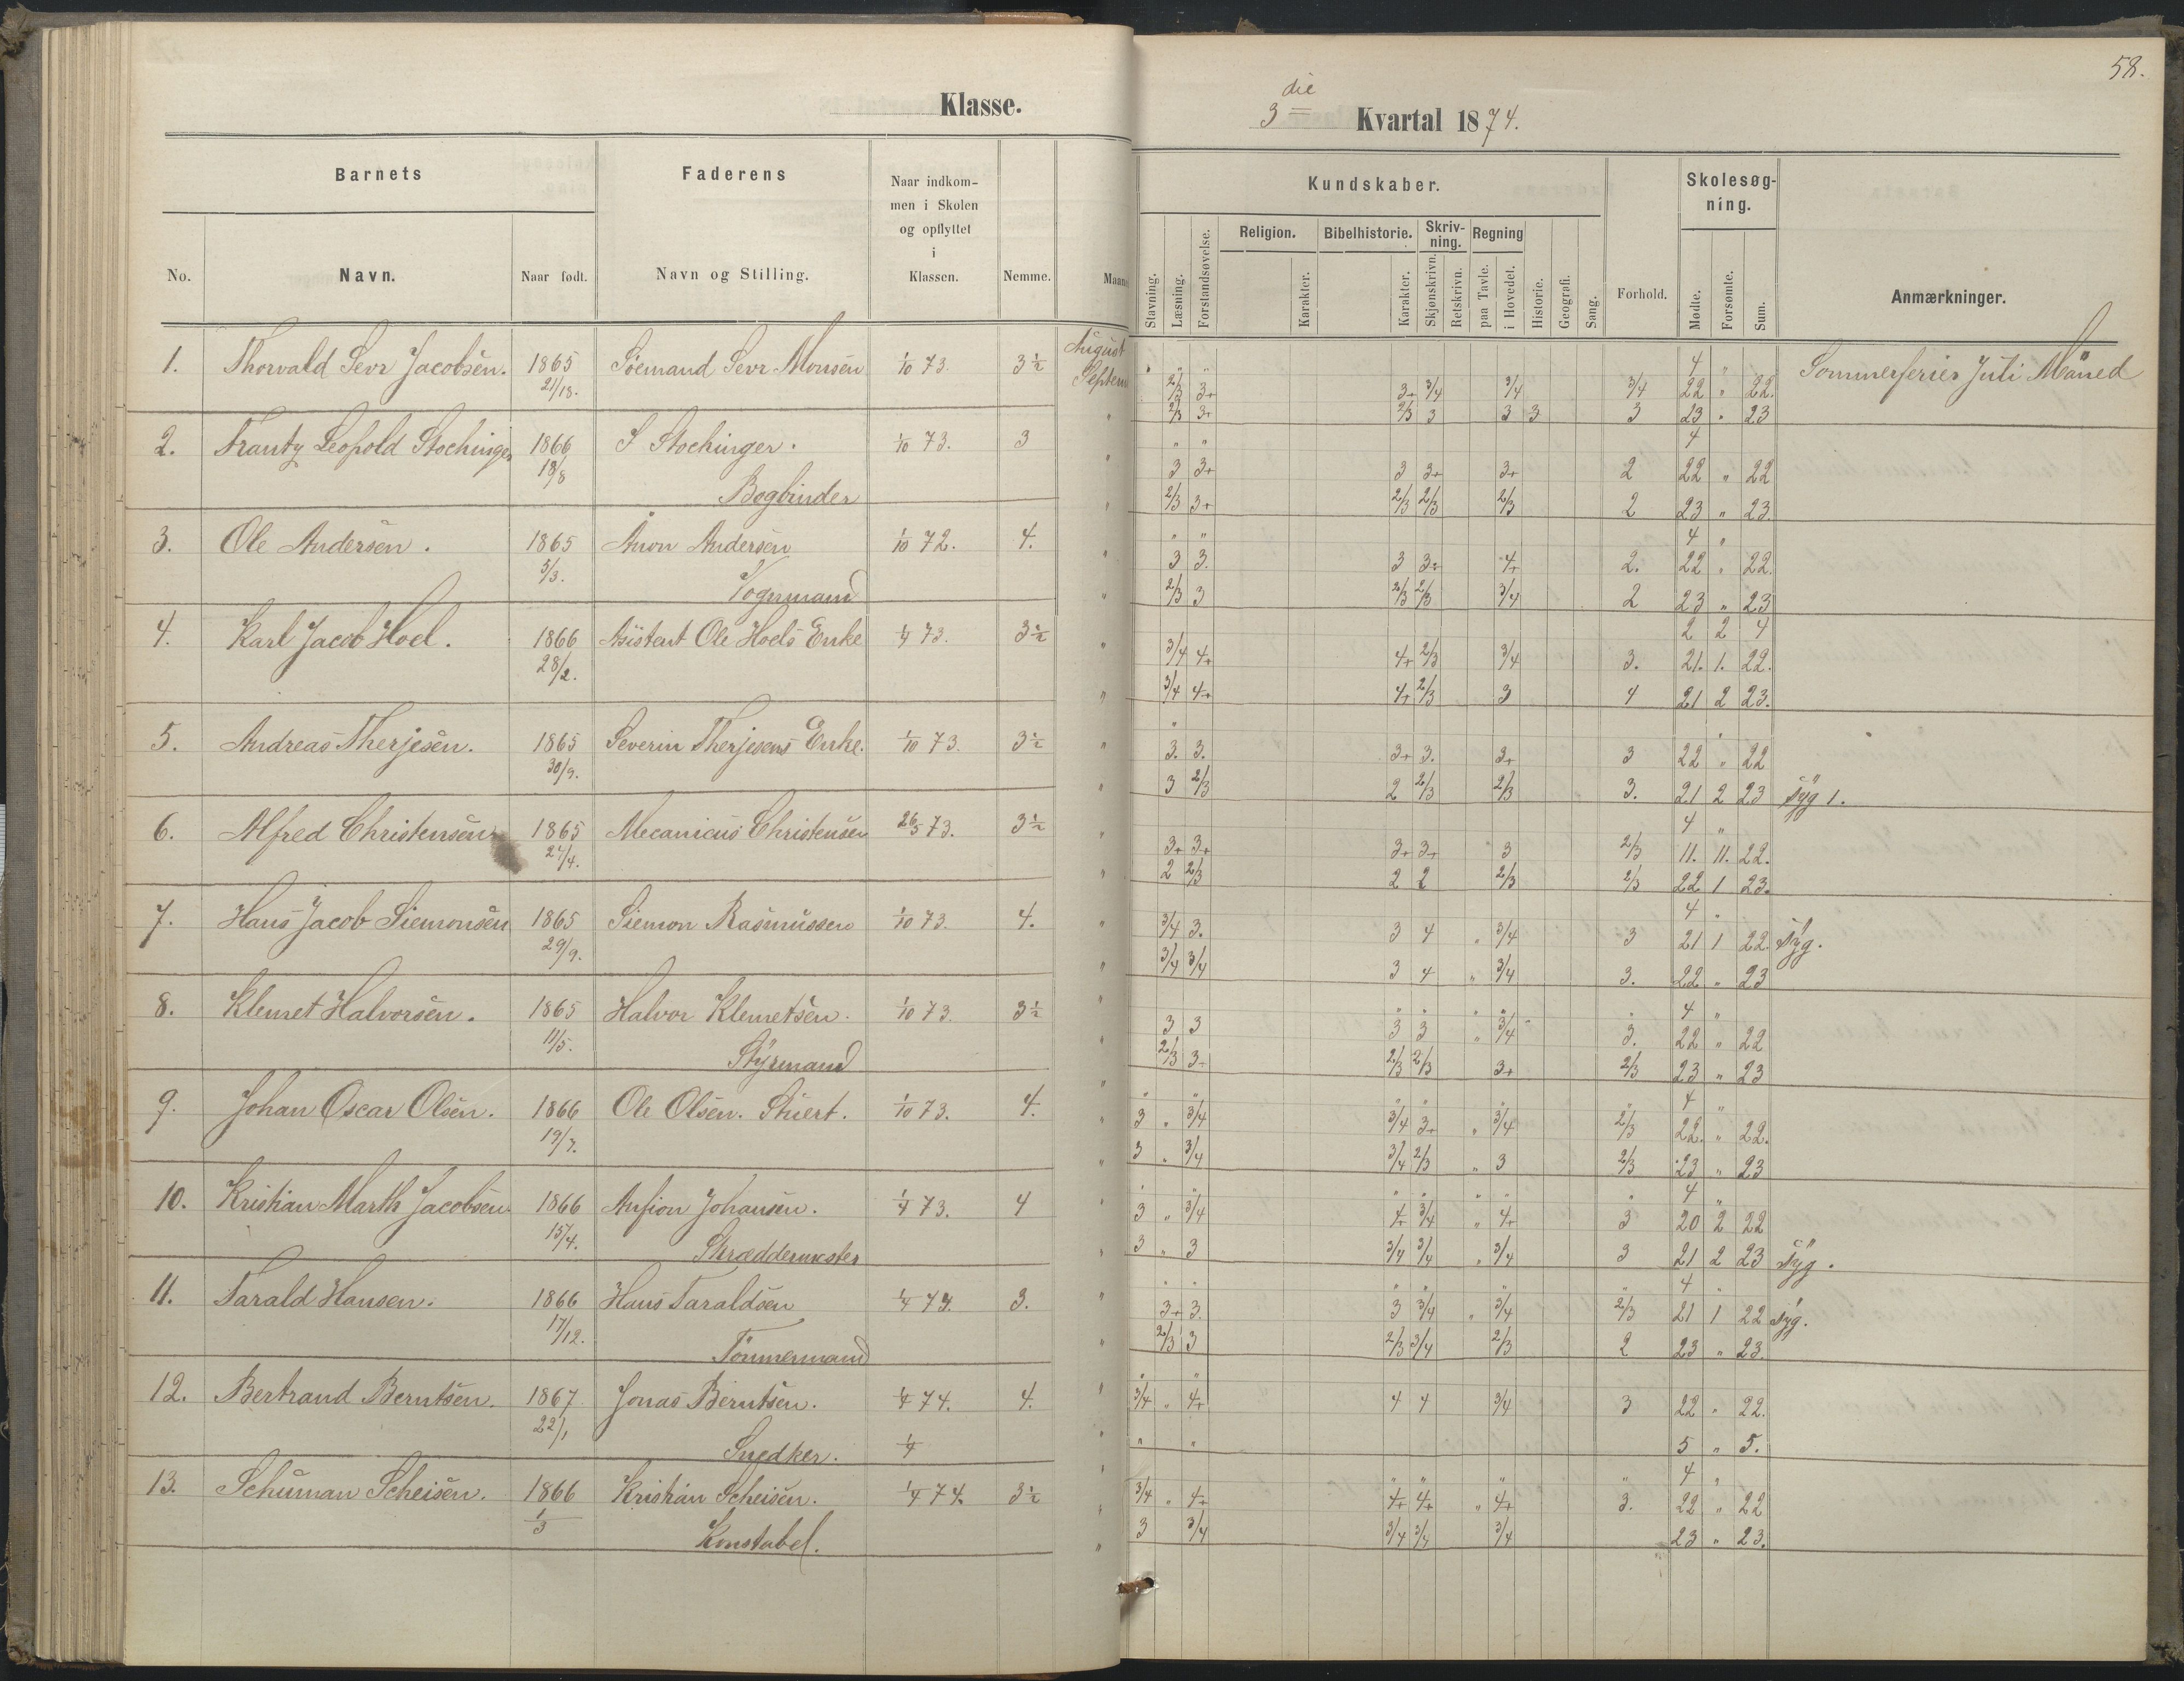 58.
Klasse.
3die Kvartal 1874.
Barnets
Faderens
Naar indkom-
men i Skolen
og opflyttet
i
Klassen.
No.
Navn.
Naar født.
Navn og Stilling.
Nemme.
Kundskaber.
Skolesøg-
ning.
Stavning.
Læsning.
Forstandsøvelse.
Religion.
Karakter.
Bibelhistorie.
Karakter.
Skriv-
ning.
Skjønskrivn.
Retskrivn.
Regning
paa Tavle.
i Hovedet.
Historie.
Geografi.
Sang.
Forhold.
Mødte.
Forsømte.
Sum.
Anmærkninger.
1. Thorvald Sevr Jacobsen. 1865 Söemand Sevr Monsen 1/10 73. 3½ August 4 " Sommerferier Juli Måned
Septem 2/3 3+ 3+ 3/4 3/4 3/4 22 " 22.
" 2/3 3+ 2/3 3 3 3 3 23 " 23
2. Leopold Stochinger 1866 J Stochinger. 1/10 73. 3 " " 4
18/8 " 3 3+ 3 3+ 3+ 2 22 " 22
Bogbinder " 2/3 3+ 2/3 2/3 2/3 2 23 " 23.
3. Ole Andersen. 1865 Andersen 1/10 72. 4. " " 4 "
5/3. " 3 3. 3 3+ 4+ 2. 22 " 22.
Vognmand " 2/3 3 2/3 2/3 3/4 2 23 " 23
4. Karl Jacob Hoel. 1866 Ole Hoels Enke 1/4 73. 3½ 2 2 4
28/2. " 3/4 4+ 4+ 2/3 3/4 3. 21. 1. 22.
" 3/4 4+ 4+ 2/3 3 4 21 2 23.
5. Andreas Therjesen. 1865 Severin Therjesens Enke. 1/10 73. 3½
30/9. " 3. 3. 3+ 3. 3+ 3 22 " 22
3 2/3 2 2/3 2/3 3. 21 2 23 syg 1.
6. Alfred Christensen 1865 Mecanicus Christensen 26/5 73. 3½ 4 "
27/4. " 3+ 3+ 3+ 3+ 3 2/3 11. 11. 22.
" 2 2/3 2 2 2/3 2/3 22 1 23.
7. Hans Jacob Siemonsen 1865 Siemon Rasmussen 1/10 73. 4. 4 "
29/9. " 3/4 3. 3 4 " 3/4 3 21 1 22. syg.
" 3/4 3/4 3 4 " 3/4 3. 22 " 23
8. Klemet Halvorsen. 1865 Halvor Klemetsen. 1/10 73. 3½ " 4 "
11/5. 3 3 3 3 " 3/4 3. 22 " 22
Styrmand " 2/3 3+ 2/3 2/3 3+ 2/3 23 " 23
9. Johan Oscar Olsen. 1866 Ole Olsen. 1/10 73. 4. " 4 "
19/7. " 3 " 3/4 3/4 3+ " 3/4 2/3 22. " 22.
" 3 " 3/4 3/4 2/3 " 3 2/3 23 " 23
10. Kristian Marth Jacobsen. 1866 Johansen. 1/4 73. 4 4 "
15/4. " 3 " 3/4 4+ 3/4 " 4+ 3 20 2 22
" 3 " 3 3/4 3/4 " 3/4 3 21 2 23 syg.
11. Tarald Hansen. 1866 Hans Taraldsen 3. 4 "
17/12. " 3+ 3. 3 3/4 " 3/4 2/3 21 1 22 syg.
Tömmermand " 2/3 3 2/3 3/4 2/3 2 23 " 23.
12. Bertrand Berntsen. 1867 Jonas Berntsen. 1/4 74. 4. " 3/4 " 4+ 4 4 3/4 3 22 " 22.
22/1
Snedker. 1/4 " " " 5 " 5.
13. Schuman Scheisen. 1866 Kristian Scheisen. 1/4 74. 3½ 4 "
1/3 3/4 " 4+ 4+ 4+ " 4+ 3. 22 " 22
Konstabel. " 3 3/4 3/4 3/4 3/4 23 " 23.